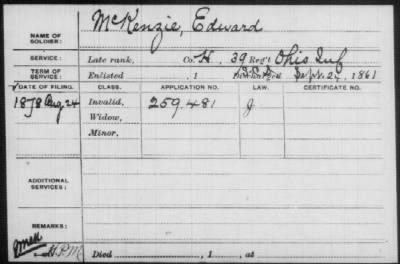 NAME OF SOLDIER: McKenzie, Edward
SERVICE: Late rank, Co. H, 39 Reg't Ohio Inf
TERM OF SERVICE: Enlisted , 1 Discharged Sept. 27, 1861
DATE OF FILING. CLASS. APPLICATION NO. LAW. CERTIFICATE NO.
1878 Aug. 24 Invalid, 259.481 J
Widow,
Minor.
ADDITIONAL SERVICES:
REMARKS:
H.P.M.
Died , 1 , at